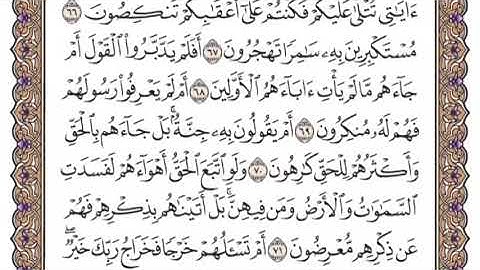 ءَايَٰتِى تُتْلَىٰ عَلَيْكُمْ فَكُنتُمْ عَلَىٰٓ أَعْقَٰبِكُمْ تَنكِصُونَ ٦٦
مُسْتَكْبِرِينَ بِهِۦ سَٰمِرًا تَهْجُرُونَ ٦٧ أَفَلَمْ يَدَّبَّرُوا۟ ٱلْقَوْلَ أَمْ
جَآءَهُم مَّا لَمْ يَأْتِ ءَابَآءَهُمُ ٱلْأَوَّلِينَ ٦٨ أَمْ لَمْ يَعْرِفُوا۟ رَسُولَهُمْ
فَهُمْ لَهُۥ مُنكِرُونَ ٦٩ أَمْ يَقُولُونَ بِهِۦ جِنَّةٌۢ ۚ بَلْ جَآءَهُم بِٱلْحَقِّ
وَأَكْثَرُهُمْ لِلْحَقِّ كَٰرِهُونَ ٧٠ وَلَوِ ٱتَّبَعَ ٱلْحَقُّ أَهْوَآءَهُمْ لَفَسَدَتِ
ٱلسَّمَٰوَٰتُ وَٱلْأَرْضُ وَمَن فِيهِنَّ ۚ بَلْ أَتَيْنَٰهُم بِذِكْرِهِمْ فَهُمْ
عَن ذِكْرِهِم مُّعْرِضُونَ ٧١ أَمْ تَسْـَٔلُهُمْ خَرْجًا فَخَرَاجُ رَبِّكَ خَيْرٌ ۖ